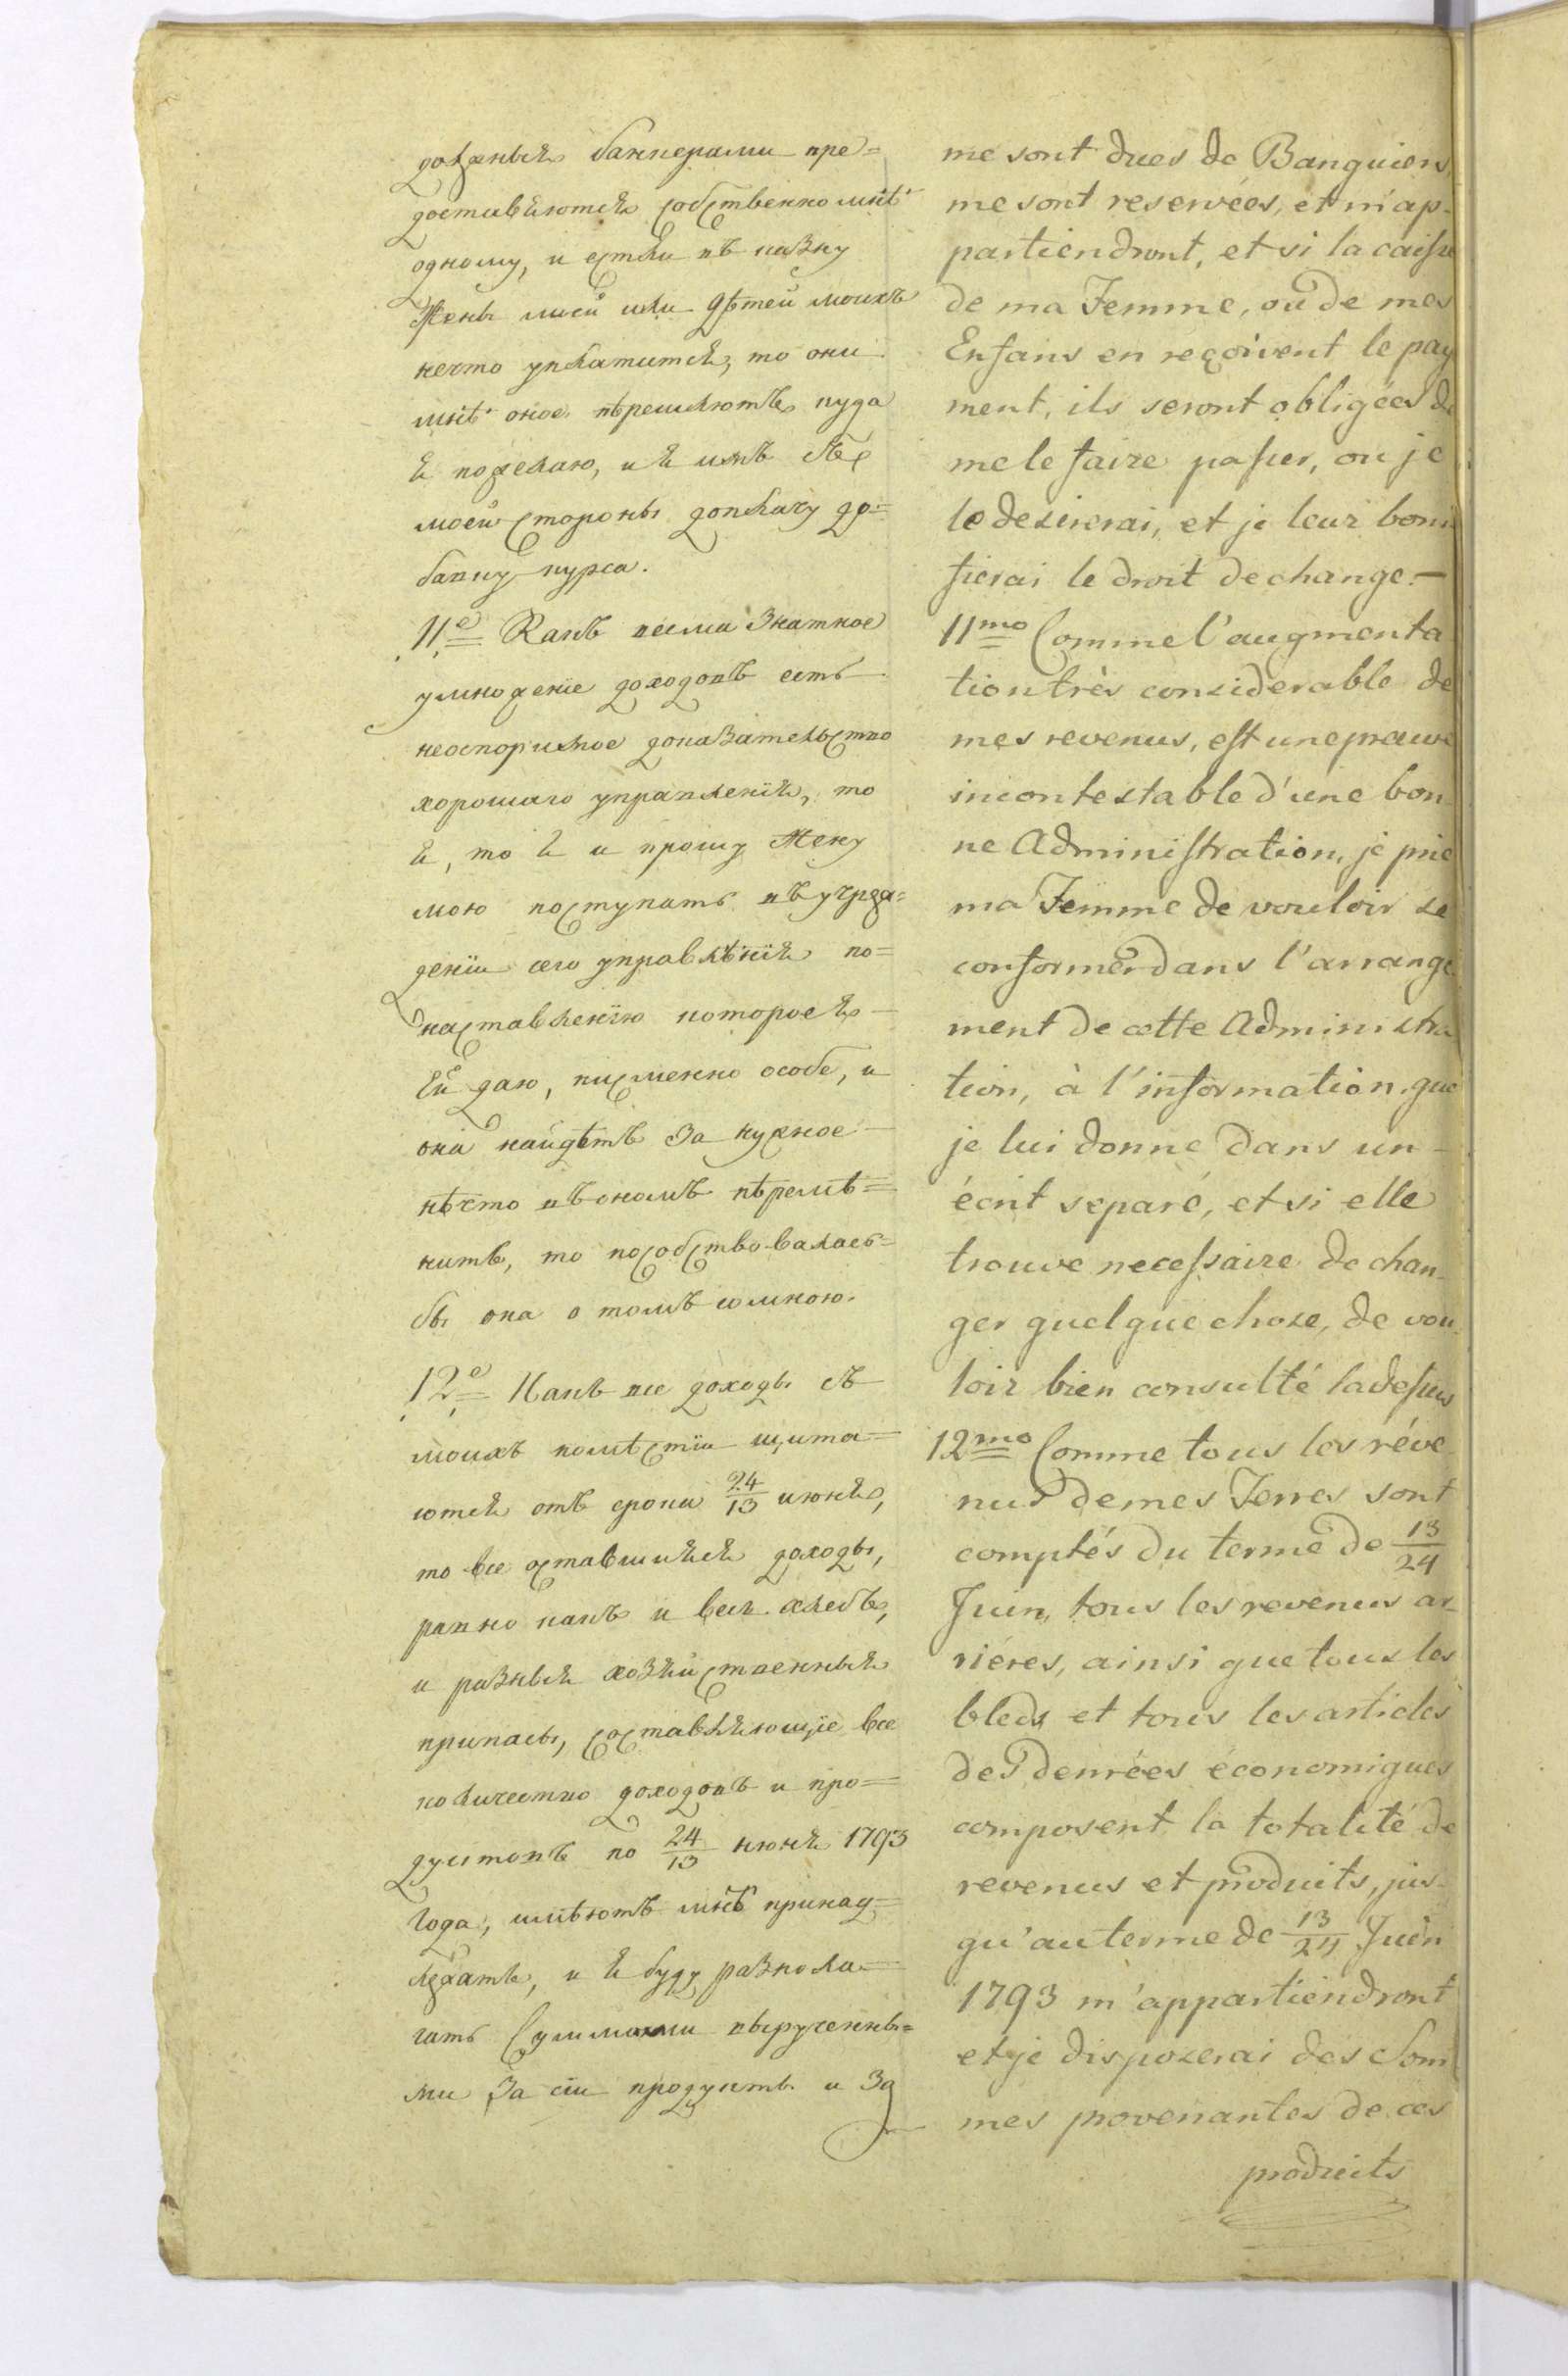 долженыя банкерами пре=
доставляются собственно мнѣ
одному, и естли въ казну
Жены моей или Дѣтей моихъ
нечто уплатится, то они
мнѣ оное пѣрешлютъ куда
я пожелаю, и я имъ съ
моей стороны доплачу до=
бавку курса.
11е Какъ весма Знатное
умножение доходовъ есть
неоспоримое доказательство
хорошаго управления, то
я, то я и прошу Жену
мою поступать въ учреж=
дении сего управлѣния по=
наставлению которое я
Ей даю, писменно особе, и
она найдѣтъ За нужное
нѣчто въ ономъ пѣремѣ=
нить, то пособствовалась=
бы она о томъ со мною.
12е Какъ все доходы съ
моихъ помѣстїи щита=
ются отъ срока 24/13 июня,
то все оставшияся доходы,
равно какъ и весь хлебъ,
и разныя хозяйственныя
припасы, составляющїе все
количество доходовъ и про=
дуктовъ по 24/13 июня 1793
Года, имѣютъ мнѣ принад=
лежать, и я буду разпола=
гать Суммами вырученны=
ми За сїи продукты и За
me sont dues de Banquiers
me sont reservées, et m'ap-
partiendront, et si la caisse
de ma Femme, ou de mes
Enfans en reçoivent le pay
ment, ils seront obligées de
me le faire passer, ou je
le desirerai, et je leur boni
fierai le droit de change.—
11mo Comme l'augmenta
tion très considerable de
mes revenus, est une preuve
incontestable d'une bon-
ne Administration, je prie
ma Femme de vouloir se
conformer dans l'arrange
ment de cette Administra
tion, à l'information que
je lui donne dans un-
écrit separé, et si elle
trouve necessaire de chan-
ger quelque chose, de vou
loir bien consulté ladessus
12mo Comme tous les réve
nus de mes Terres sont
comptés du terme de 13/24
Juin, tous les revenus ar-
riéres, ainsi que tous les
bleds et tous les articles
des denrées économiques
composent la totalité de
revenus et produits, jus-
qu'au terme de 13/24 Juin
1793 m'appartiendront
et je disposerai des Som
mes provenantes de ces
produits